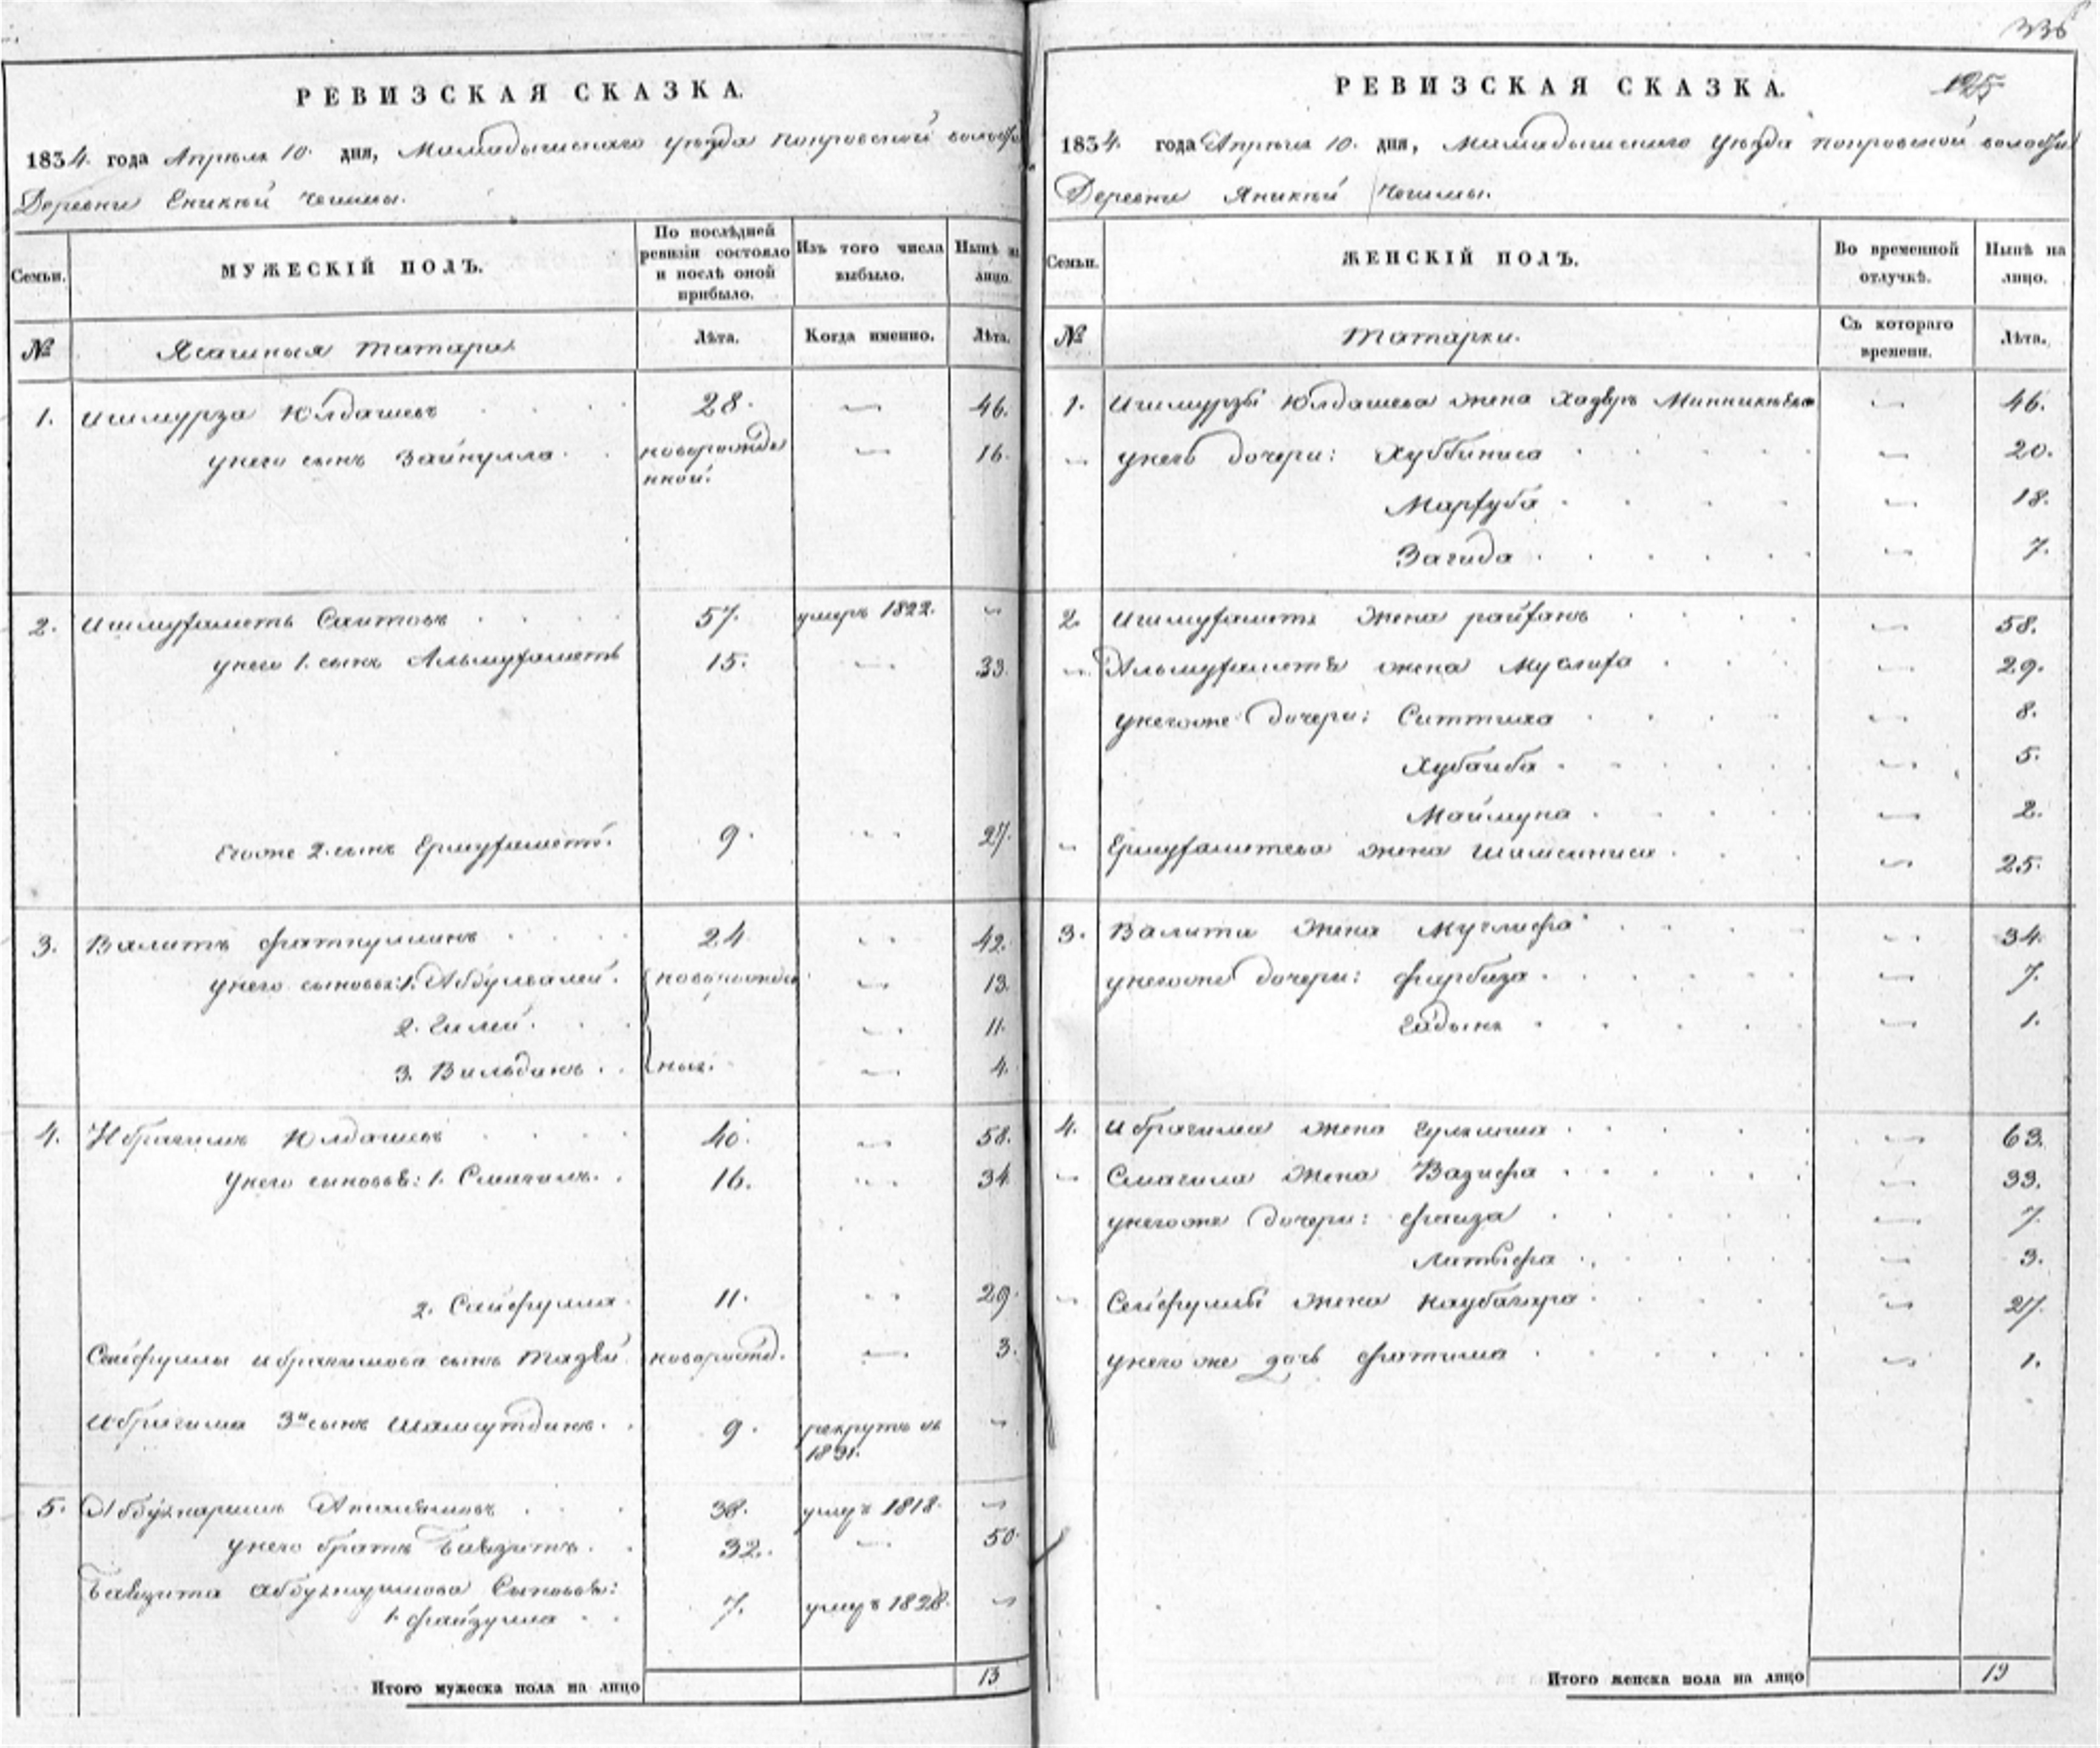 РЕВИЗСКАЯ СКАЗКА.
1834. года Апреля 10. дня, Мамадышскаго уѣзда Покровской волости
Деревни Еникѣй Чешмы.
Семьи.
МУЖЕСКІЙ ПОЛЪ.
По послѣдней ревизіи состояло и послѣ оной прибыло.
Изъ того числа выбыло.
Нынѣ на лицо.
№
Ясашныя татара
Лѣта.
Когда именно.
Лѣта.
1. Ишмурза Юлдашевъ 28. 46.
у него сынъ Зайнулла новорожденной. 16.
2. Ишмухаметь Саитовъ 57. умеръ 1822.
у него 1. сынъ Альмухаметь 15. 33.
Егоже 2. сынъ Ермухаметь. 9. 27.
3. Валитъ Фаткуллинъ 24 42.
у него сыновья: 1. Абдулвалей. новорожден 13.
2. Гилей. 11.
3. Вильданъ. ныя. 4.
4. Ибрагимъ Юлдашевъ 40. 58.
У него сыновья: 1. Смагилъ. 16. 34
2. Сайфулла. 11. 29.
Сейфуллы Ибрагимова сынъ Тазѣй новорожд. 3.
Ибрагима 3й сынъ Шамсутдинъ. 9. рекрутъ въ 1831.
5. Абдулкаримъ 38. умеръ 1818.
у него братъ Баязитъ. 32. 50.
Баязита Абдулкаримова Сыновья:
1. Файзулла 7. умеръ 1828.
Итого мужеска пола на лицо 13
336
РЕВИЗСКАЯ СКАЗКА.
125
1834. года Апреля 10. дня, Мамадышскаго Уѣзда Покровской волости
Деревни Яникѣй Чешмы.
Семьи.
ЖЕНСКІЙ ПОЛЪ.
Во временной отлучкѣ.
Нынѣ на лицо.
№
Татарки.
Съ котораго времени.
Лѣта.
1. Ишмурзы Юлдашева жена Хадыръ Минникѣева 46.
у него дочери: Хуббиниса 20.
Мархуба 18.
Загида 7.
2. Ишмухаметя жена Райханъ 58.
Альмухаметя жена Муслиха 29.
у негоже дочери: Ситтиха 8.
Хубаиба 5.
Маймуна 2.
Ермухаметева жена Шамсиниса. 25.
3. Валита жена Муглифа 34.
у негоже дочери: Фарбиза 7.
1.
4. Ибрагима жена 63.
Смагила жена Вазифа 33.
у негоже дочери: Фаиза 7.
Латыфа 3.
Сейфуллы жена Каубахура 27.
у него же дочь Фатима 1.
Итого женска пола на лицо 19